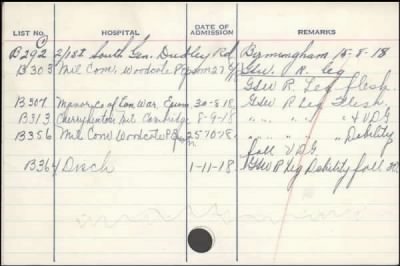 LIST No. HOSPITAL DATE OF ADMISSION REMARKS
B292 2/1st South Gen. Dudley Rd Birmingham 15-8-18
B303 Mil Conv Woodcote Pk Epsom 27 GSW. R. Leg
GSW R Leg flesh.
B307 Manor Co of Lon War Epsom 30-8-18 GSW R Leg flesh,
B313 Cherryhinton Mil Cambridge 8-9-18 " " " " & V.D.G.
B356 Mil Conv Woodcote Pk Epsom 25-10-18 " " " " Debility
foll V.D.G.
B364 Disch 1-11-18 GSW R Leg Debility foll